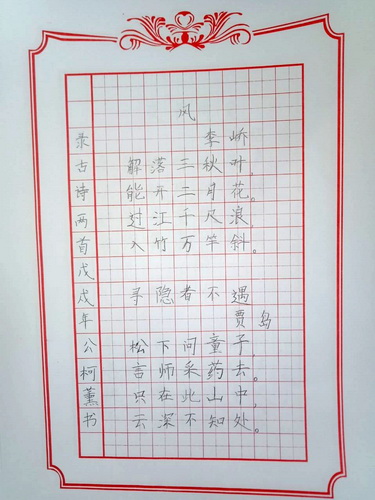 风
李峤
解落三秋叶，
能开二月花。
过江千尺浪，
入竹万竿斜。
寻隐者不遇
贾岛
松下问童子，
言师采药去。
只在此山中，
云深不知处。
录古诗两首戊戌年公柯薰书